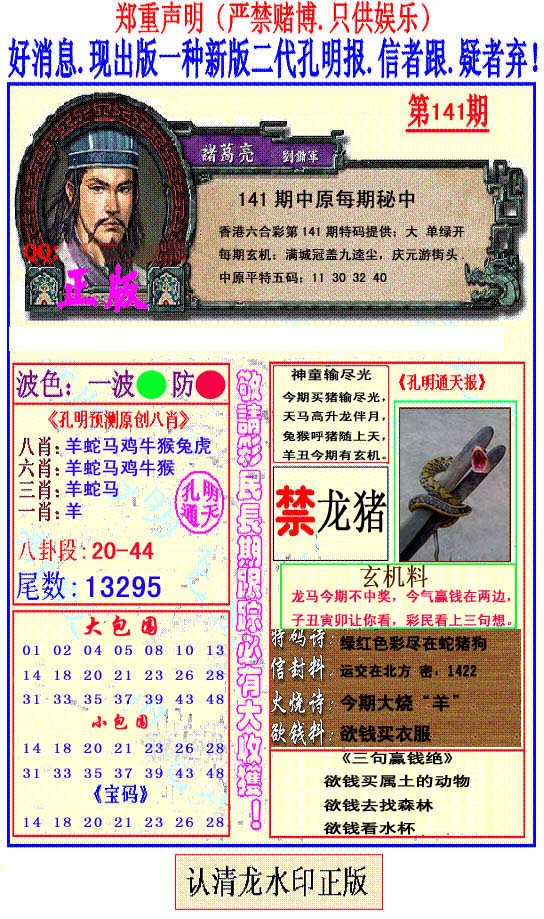 郑重声明（严禁赌博.只供娱乐）
好消息.现出版一种新版二代孔明报.信者跟.疑者弃！
第141期
諸葛亮 劉備軍
141 期中原每期秘中
香港六合彩第 141 期特码提供：大 单绿开
每期玄机：满城冠盖九逵尘，庆元游街头.
中原平特五码：11 30 32 40
QQ:
正版
波色：一波 防
《孔明预测原创八肖》
八肖：羊蛇马鸡牛猴兔虎
六肖：羊蛇马鸡牛猴
三肖：羊蛇马
一肖：羊
孔明
通天
八卦段：20-44
尾数：13295
大包围
01 02 04 05 08 10 13
14 18 20 21 23 26 28
31 33 35 37 39 43 48
小包围
14 18 20 21 23 26 28
31 33 35 37 39 43 48
《宝码》
14 18 20 21 23 26 28
敬請彩民長期跟踪必有大收獲！
神童输尽光
今期买猪输尽光，
天马高升龙伴月，
兔猴呼猪随上天，
羊丑今期有玄机。
《孔明通天报》
禁龙猪
玄机料
龙马今期不中奖，今气赢钱在两边，
子丑寅卯让你看，彩民看上三句想。
特码诗：绿红色彩尽在蛇猪狗
信封料：运交在北方 密：1422
火烧诗：今期大烧“羊”
欲钱料：欲钱买衣服
《三句赢钱绝》
欲钱买属土的动物
欲钱去找森林
欲钱看水杯
认清龙水印正版